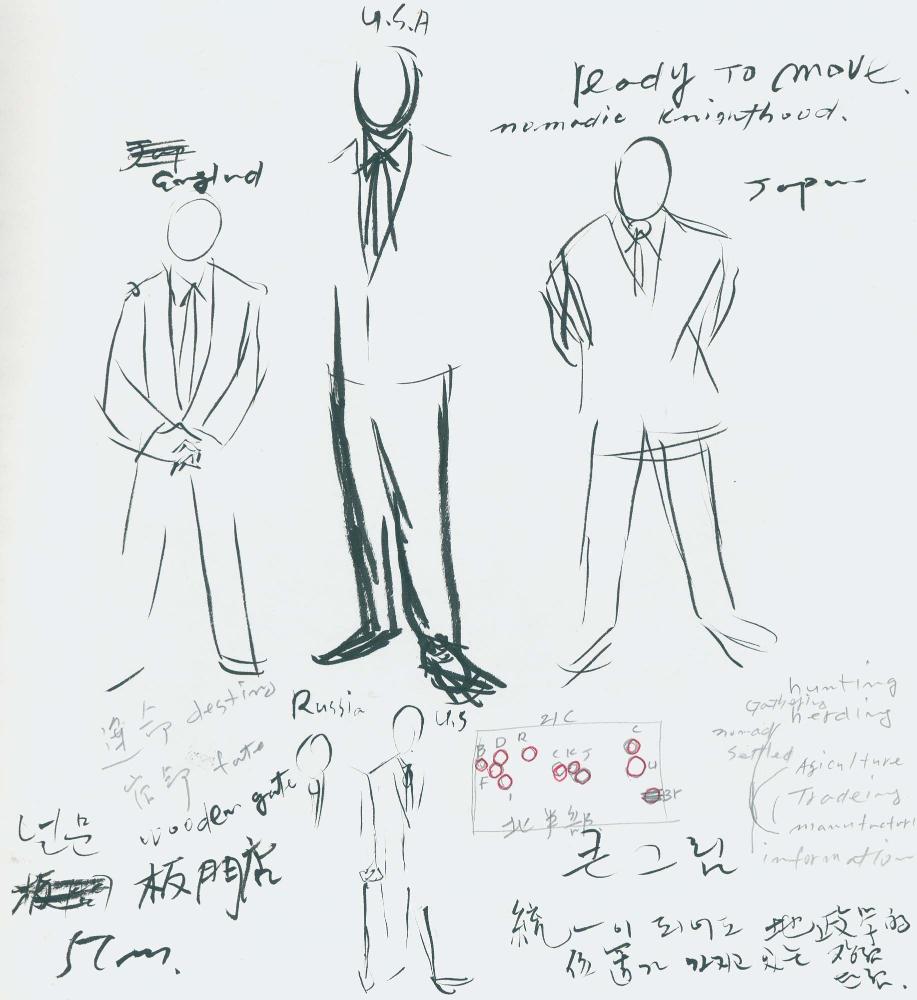 U.S.A
ready TO move.
nomadic Knighthood.
England
Japan
destiny
fate
Russia
U.S
21C
B D R C K J C U
F I Br
北半部
hunting
Gathering herding
nomad
settled
Agiculture
Tradeing
manufacturi
information
널문
wooden gate
板門店
57m.
큰 그림
統一이 되어도 地政学的
位置가 가지고 있는